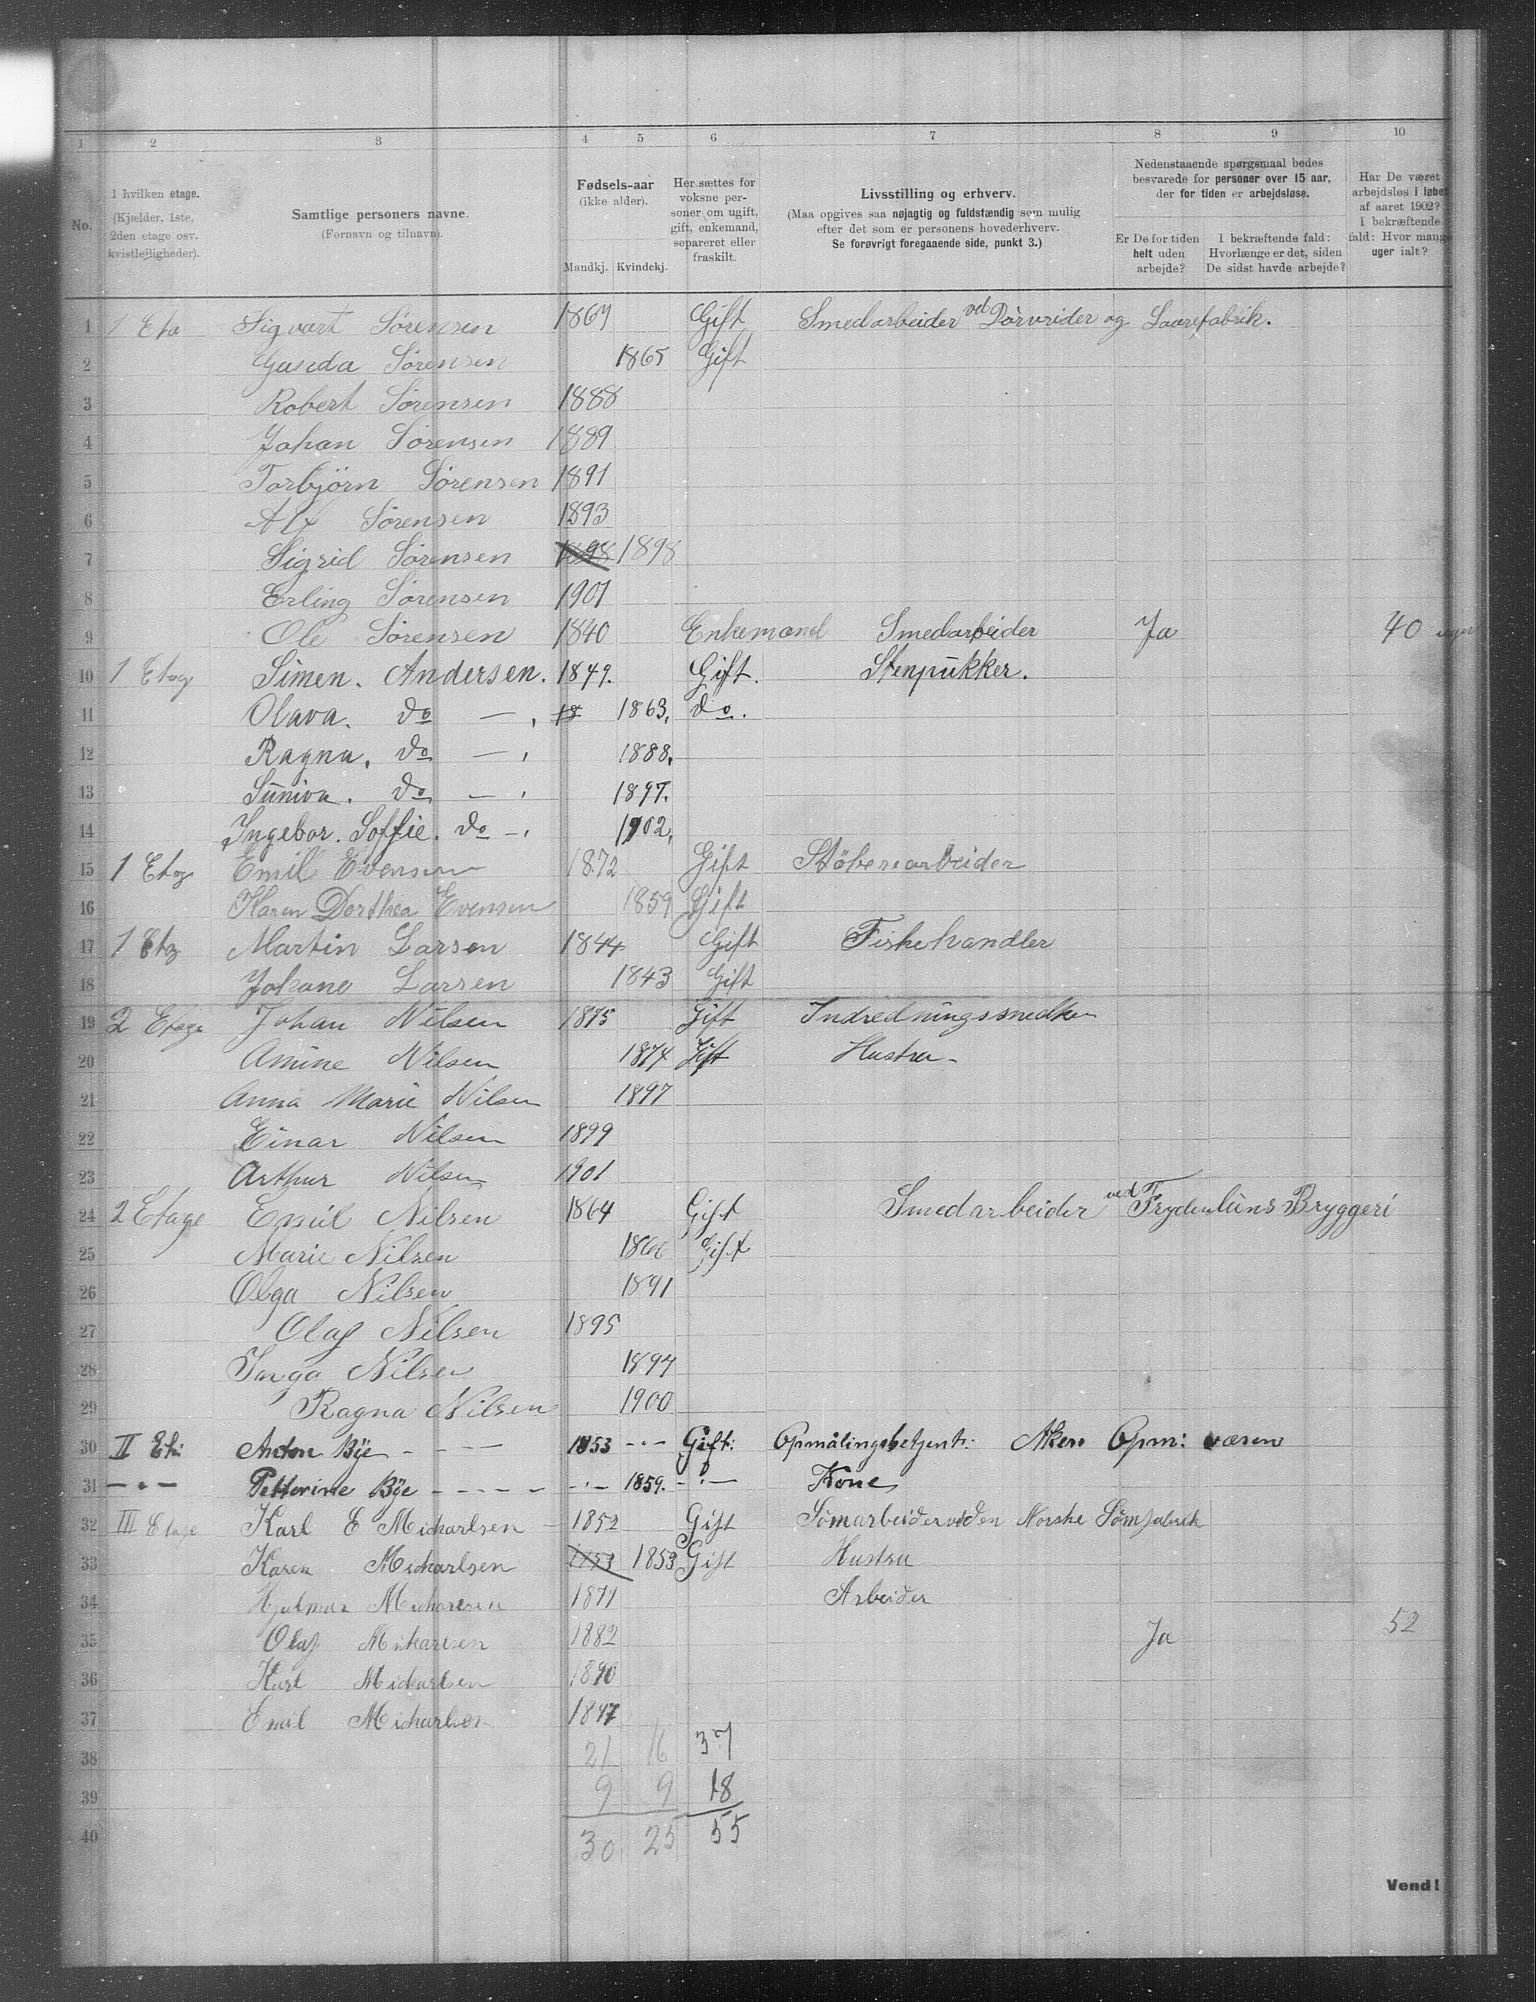 1 2 3 4 5 6 7 8 9 10
No. I hvilken etage. (Kjælder, 1ste, 2den etage osv. kvistlejligheder).
Samtlige personers navne. (Fornavn og tilnavn).
Fødsels-aar (ikke alder). Mandkj. Kvindekj.
Her sættes for voksne personer om ugift, gift, enkemand, separeret eller fraskilt.
Livsstilling og erhverv. (Maa opgives saa nøjagtig og fuldstændig som mulig efter det som er personens hovederhverv. Se forøvrigt foregaaende side, punkt 3.)
Nedenstaaende spørgsmaal bedes besvarede for personer over 15 aar, der for tiden er arbejdsløse.
Er De for tiden helt uden arbejde?
I bekræftende fald: Hvorlænge er det, siden De sidst havde arbejde?
Har De været arbejdsløs i løbet af aaret 1902? I bekræftende fald: Hvor mange uger ialt?
1 1 Eta Sigvart Sørensen 1867 Gift Smedarbeider ved Dørvrider og Laasefabrik.
2 Sørensen 1865 Gift
3 Robert Sørensen 1888
4 Johan Sørensen 1889
5 Torbjörn Sørensen 1891
6 Alf Sørensen 1893
7 Sigrid Sørensen 1898 1898
8 Erling Sørensen 1901
9 Ole Sørensen 1840 Enkemand Smedarbeider Ja 40 uger
10 1 Etag Simen. Andersen. 1849. Gift. Stenpukker.
11 Olava. do — . 18 1863. do.
12 Ragna. do — . 1888.
13 Suniva. do — . 1897.
14 Ingebor. Soffie. do —. 1902.
15 1 Etag Emil Evensen 1872 Gift Støberiarbeider
16 Karen Dorthea Evensen 1859 Gift
17 1 Etg Martin Larsen 1844 Gift Fiskehandler
18 Johane Larsen 1843 Gift
19 2 Etage Johan Nilsen 1875 Gift Indredningssnedker
20 Amine Nilsen 1874 Gift Hustru -
21 Anna Marie Nilsen 1897
22 Einar Nilsen 1899
23 Arthur Nilsen 1901
24 2 Etage Emil Nilsen 1864 Gift Smedarbeider ved Frydenluns Bryggeri
25 Marie Nilsen 1866 Gift
26 Olga Nilsen 1891
27 Olaf Nilsen 1895
28 Inga Nilsen 1897
29 Ragna Nilsen 1900
30 II Et: Anton Bÿe - - - - 1853 - · - Gift: Opmålingsbetjent: Akers Opm: væsen
31 — · — Petterine Bÿe - - - - - - · - 1859. - · — Kone
32 III Etage Karl E Micharlsen 1852 Gift Sømarbeider ved den Norske Sømfabrik
33 Karen Micharlsen 1853 1853 Gift Hustru
34 Hjalmar Micharlsen 1877 Arbeider
35 Olaf Micharlsen 1882 Ja 52
36 Karl Micharlsen 1890
37 Emil Micharlsen 1897
38 21 16 37
39 9 9 18
40 30 25 55
Vend!